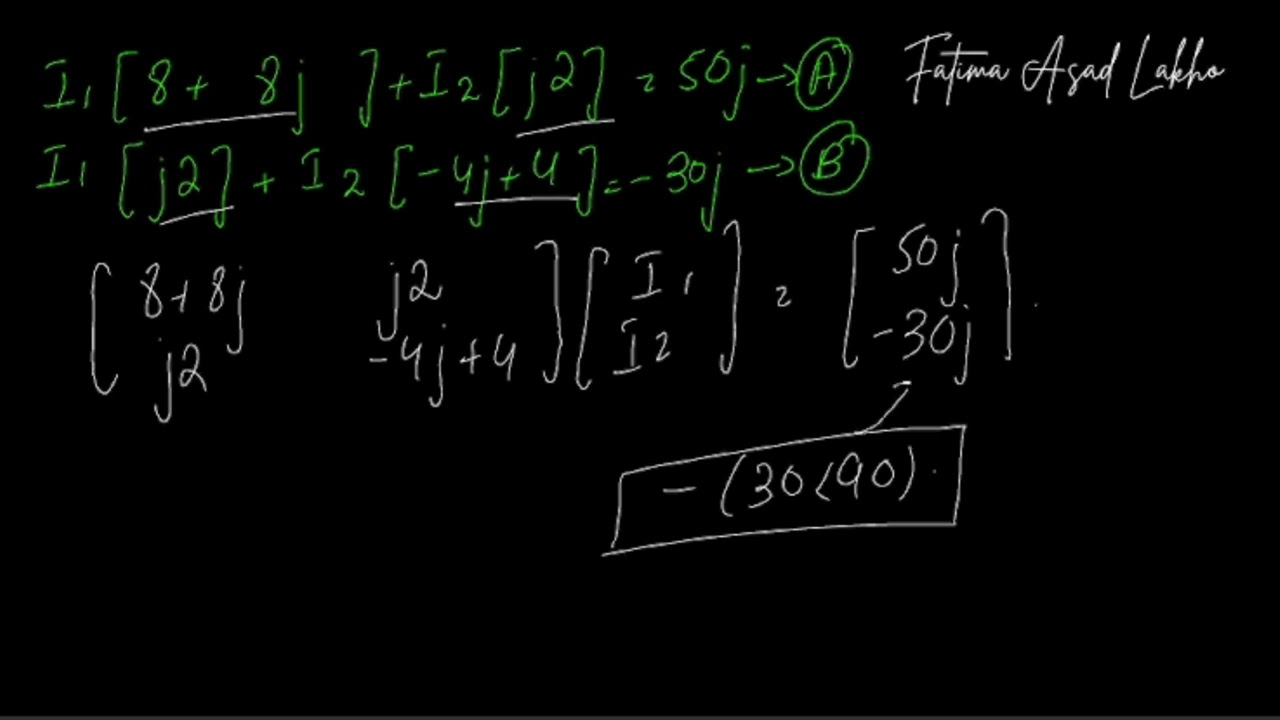 I₁ [8 + 8j ] + I₂ [j2] = 50j → Ⓐ
Fatima Asad Lakho
I₁ [j2] + I₂ [-4j+4] = -30j → Ⓑ
[8+8j j2] [I₁] = [50j]
[j2 -4j+4] [I₂] [-30j]
-(30<90).